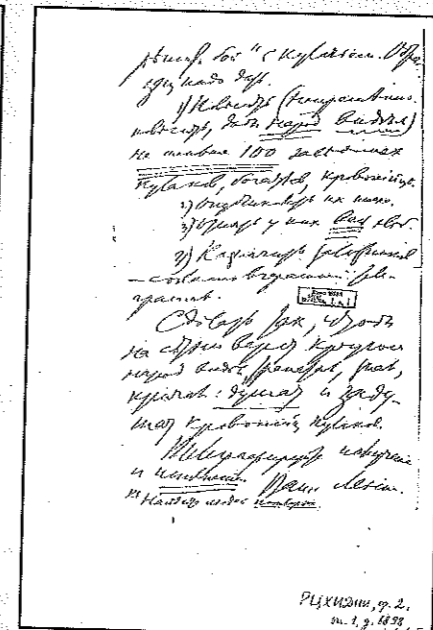 решит. бой" с кулачьем. Обра-
зец надо дать.
1) Повесить (непременно
повесить, дабы народ видел)
не меньше 100 заведомых
кулаков, богатеев, кровопийц.
2) Опубликовать их имена.
3) Отнять у них весь хлеб.
4) Назначить заложников
— согласно вчерашней теле-
грамме.
Сделать так, чтобы
на сотни верст кругом
народ видел, трепетал, знал,
кричал: душат и заду-
шат кровопийц кулаков.
Телеграфируйте получение
и исполнение. Ваш Ленин.
Найдите людей потверже.
РЦХИДНИ, ф. 2,
оп. 1, д. 6898